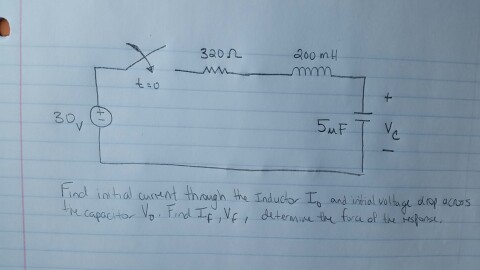 320Ω 200 mH
t=0
30v
+
-
5μF
+
Vc
-
Find initial current through the Inductor I₀ and initial voltage drop across
the capacitor V₀. Find If, Vf, determine the force of the response.